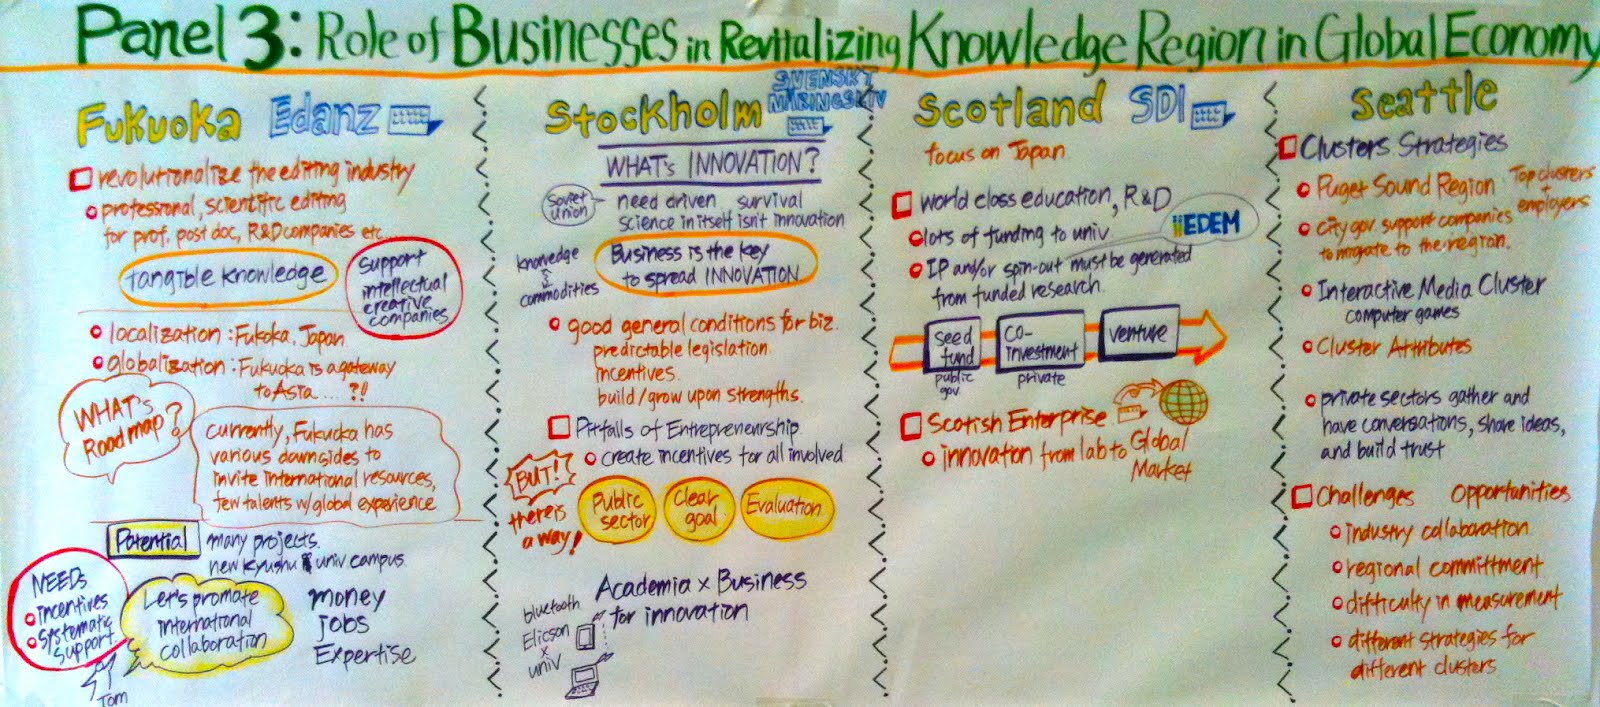 Panel 3: Role of Businesses in Revitalizing Knowledge Region in Global Economy
Fukuoka Edanz
revolutionalize the editing industry
professional, scientific editing
for prof. post doc, R&D companies etc
tangible knowledge
support
intellectual
creative
companies
localization: Fukoka. Japan
globalization: Fukuoka is a gateway
to Asia ... ?!
WHAT's
Road map?
currently, Fukuoka has
various downsides to
invite international resources,
few talents w/ global experience
Potential
many projects.
new Kyushu univ campus
NEEDs
incentives
systematic
support
Let's promate
international
collaboration
Tom
money
jobs
Expertise
Stockholm
SVENSKT
NÄRINGSLIV
WHAT's INNOVATION?
Soviet
union
need driven survival
science in itself isn't innovation
knowedge
commodities
Business is the key
to spread INNOVATION
good general conditions for biz.
predictable legislation.
incentives.
build/grow upon strengths.
Pitfalls of Entrepreneurship
create incentives for all involved
BUT!
there is
a way!
Public
sector
Clear
goal
Evaluation
Academia x Business
for innovation
bluetooth
Elicson
x
univ
Scotland SDI
focus on Japan
world class education, R&D
lots of funding to univ.
iiEDEM
IP and/or spin-out must be generated
from funded research.
seed
fund
public
gov.
co-
investment
private
venture
Scotish Enterprise
innovation from lab to Global
Market
Seattle
Clusters Strategies
Puget Sound Region
Top clusters
+
employers
city gov. support companies
to migrate to the region.
Interactive Media Cluster
computer games
Cluster Attributes
private sectors gather and
have conversations, share ideas,
and build trust
Challenges Opportunities
industry collaboration
regional committment
difficulty in measurement
different strategies for
different clusters